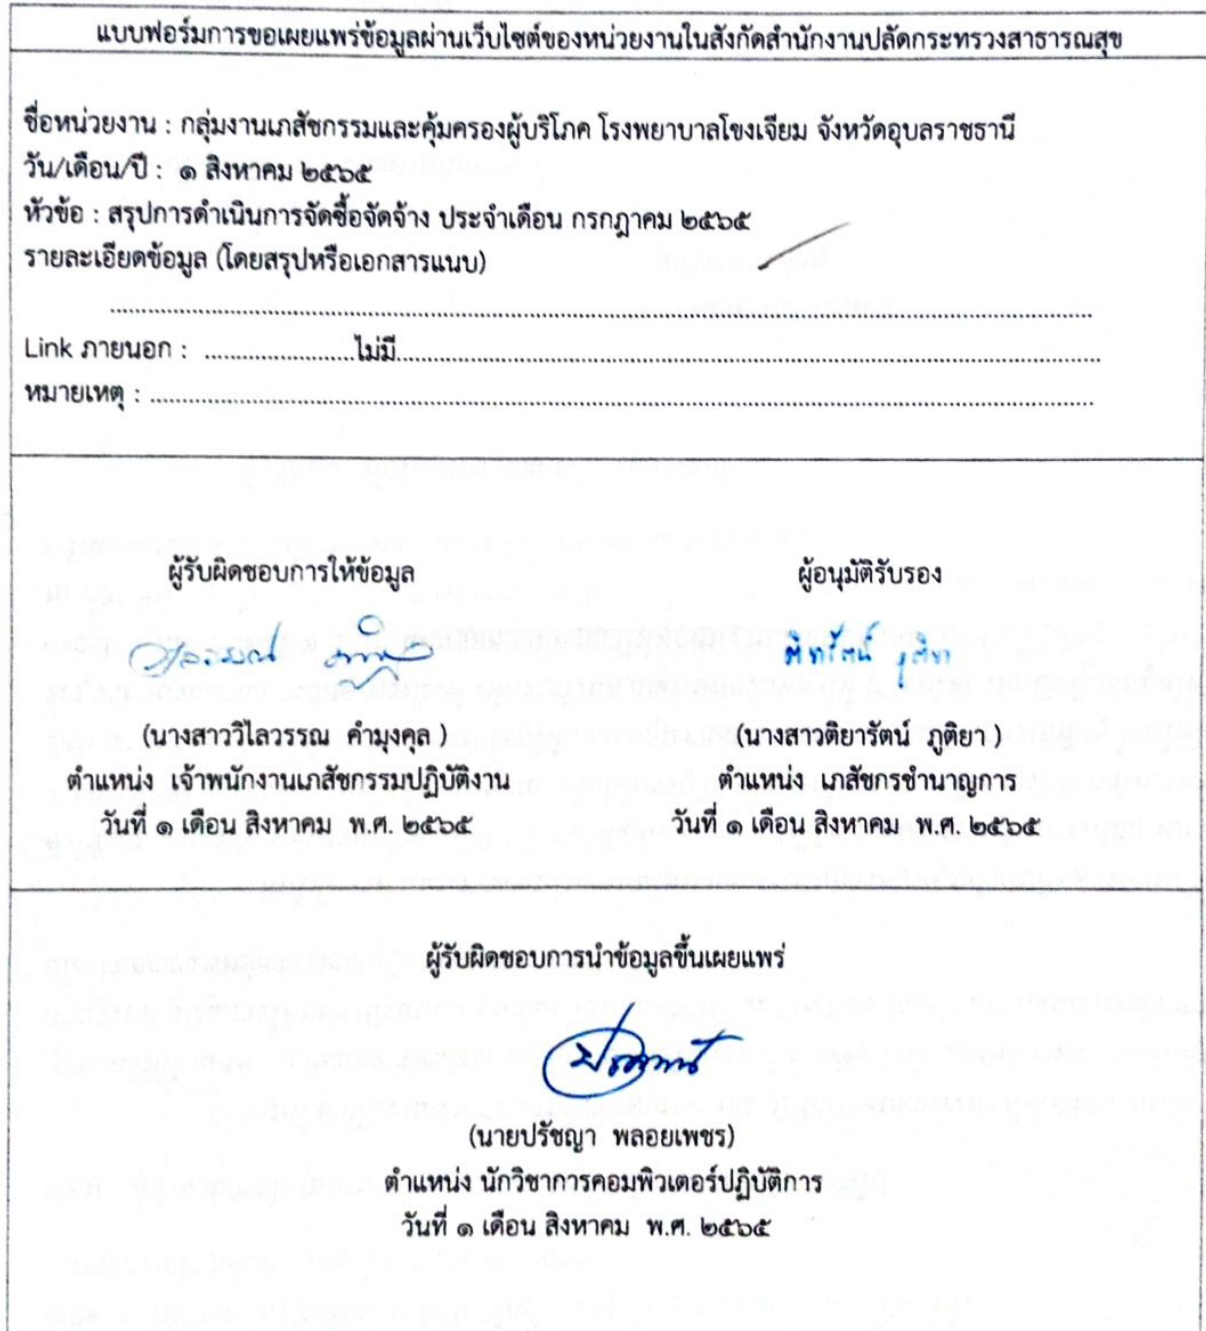 แบบฟอร์มการขอเผยแพร่ข้อมูลผ่านเว็บไซต์ของหน่วยงานในสังกัดสำนักงานปลัดกระทรวงสาธารณสุข
ชื่อหน่วยงาน : กลุ่มงานเภสัชกรรมและคุ้มครองผู้บริโภค โรงพยาบาลโขงเจียม จังหวัดอุบลราชธานี
วัน/เดือน/ปี : ๑ สิงหาคม ๒๕๖๕
หัวข้อ : สรุปการดำเนินการจัดซื้อจัดจ้าง ประจำเดือน กรกฎาคม ๒๕๖๕
รายละเอียดข้อมูล (โดยสรุปหรือเอกสารแนบ)
Link ภายนอก : ........................ไม่มี........................
หมายเหตุ : ........................
ผู้รับผิดชอบการให้ข้อมูล
(นางสาววิไลวรรณ คำมุงคุล )
ตำแหน่ง เจ้าพนักงานเภสัชกรรมปฏิบัติงาน
วันที่ ๑ เดือน สิงหาคม พ.ศ. ๒๕๖๕
ผู้อนุมัติรับรอง
(นางสาวติยารัตน์ ภูติยา )
ตำแหน่ง เภสัชกรชำนาญการ
วันที่ ๑ เดือน สิงหาคม พ.ศ. ๒๕๖๕
ผู้รับผิดชอบการนำข้อมูลขึ้นเผยแพร่
(นายปรัชญา พลอยเพชร)
ตำแหน่ง นักวิชาการคอมพิวเตอร์ปฏิบัติการ
วันที่ ๑ เดือน สิงหาคม พ.ศ. ๒๕๖๕